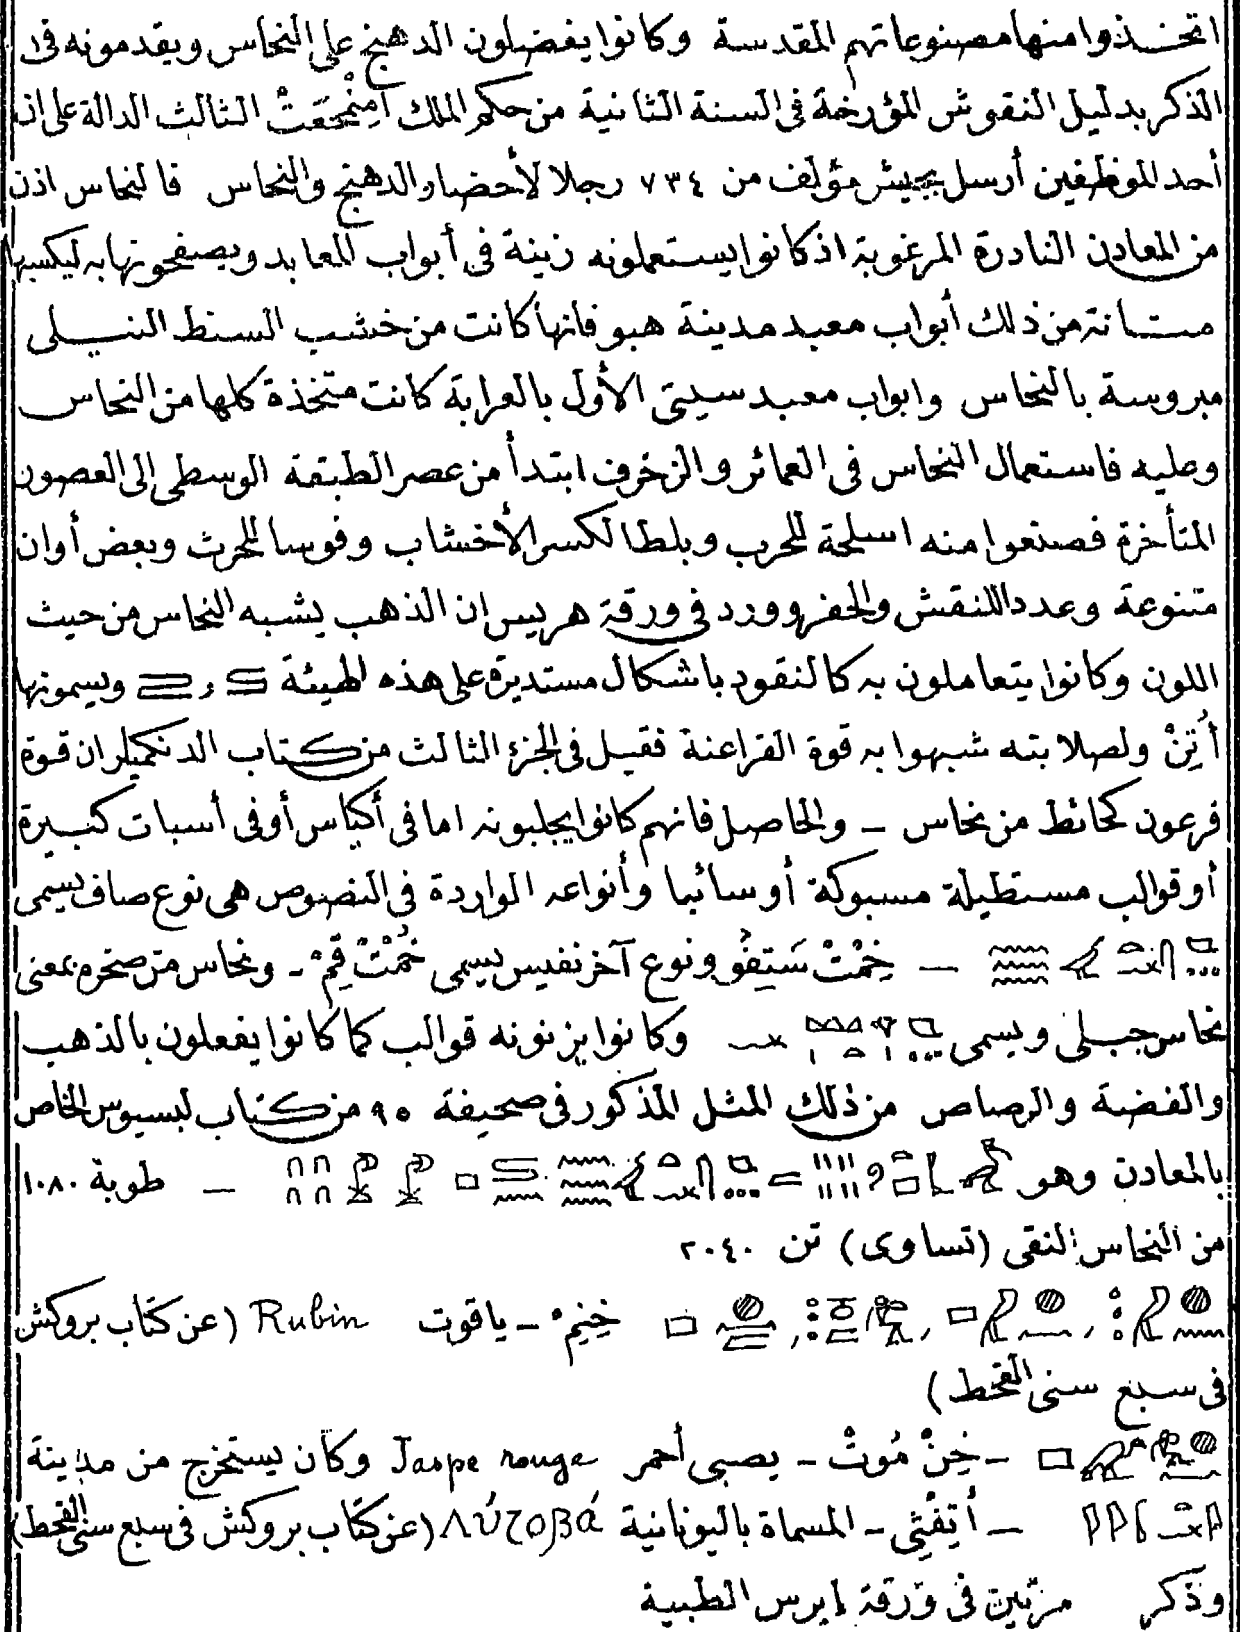 اتخذوا منها مصنوعاتهم المقدسة وكانوا يفضلون الدهنج على النحاس ويقدمونه في
الذكر بدليل النقوش المؤرخة في السنة الثانية من حكم الملك أمنمحعت الثالث الدالة على ان
أحد الموظفين أرسل بجيش مؤلف من ٧٣٤ رجلا لأحضار الدهنج والنحاس فالنحاس اذن
من المعادن النادرة المرغوبة اذ كانوا يستعملونه زينة في أبواب المعابد ويصفحونها به ليكسبها
متانة من ذلك أبواب معبد مدينة هبو فانها كانت من خشب السنط النيلى
مبروسة بالنحاس وابواب معبد سيتى الأول بالعرابة كانت متخذة كلها من النحاس
وعليه فاستعمال النحاس في العمائر والزخرف ابتدأ من عصر الطبقة الوسطى إلى العصور
المتأخرة فصنعوا منه اسلحة للحرب وبلطا لكسر الأخشاب وفوسا للحرث وبعض أوان
متنوعة وعددا للنقش والحفر وورد في ورقة هريس ان الذهب يشبه النحاس من حيث
اللون وكانوا يتعاملون به كالنقود باشكال مستديرة على هذه الهيئة و ويسمونها
أُتِنْ ولصلابته شبهوا به قوة الفراعنة فقيل في الجزء الثالث من كتاب الدنكميلر ان قوة
فرعون كحائط من نحاس ـ والحاصل فانهم كانوا يجلبونه اما في أكياس أو في أسبات كبيرة
أو قوالب مستطيلة مسبوكة أو سائبا وأنواعه الواردة في النصوص هى نوع صاف يسمى
ـ خِمْتْ سَتِيفُو ونوع آخر نفيس يسمى خُمْتْ قِمْ ـ ونحاس من صخره بمعنى
نحاس جبلى ويسمى وكانوا يزنونه قوالب كما كانوا يفعلون بالذهب
والفضة والرصاص من ذلك المثل المذكور في صحيفة ٩٥ من كتاب لبسيوس الخاص
بالمعادن وهو ـ طوبة ١٠٨٠
من النحاس النقى (تساوى) تن ٢٠٤٠
خِنِمْ ـ ياقوت Rubin (عن كتاب بروكش
في سبع سنى القحط)
ـ خِنْ مُوتْ ـ يصبى أحمر Jaspe rouge وكان يستخرج من مدينة
ـ أَتِفْتِى ـ المسماة باليونانية (عن كتاب بروكش في سبع سنى القحط)
وذكر مرتين في ورقة ابرس الطبية